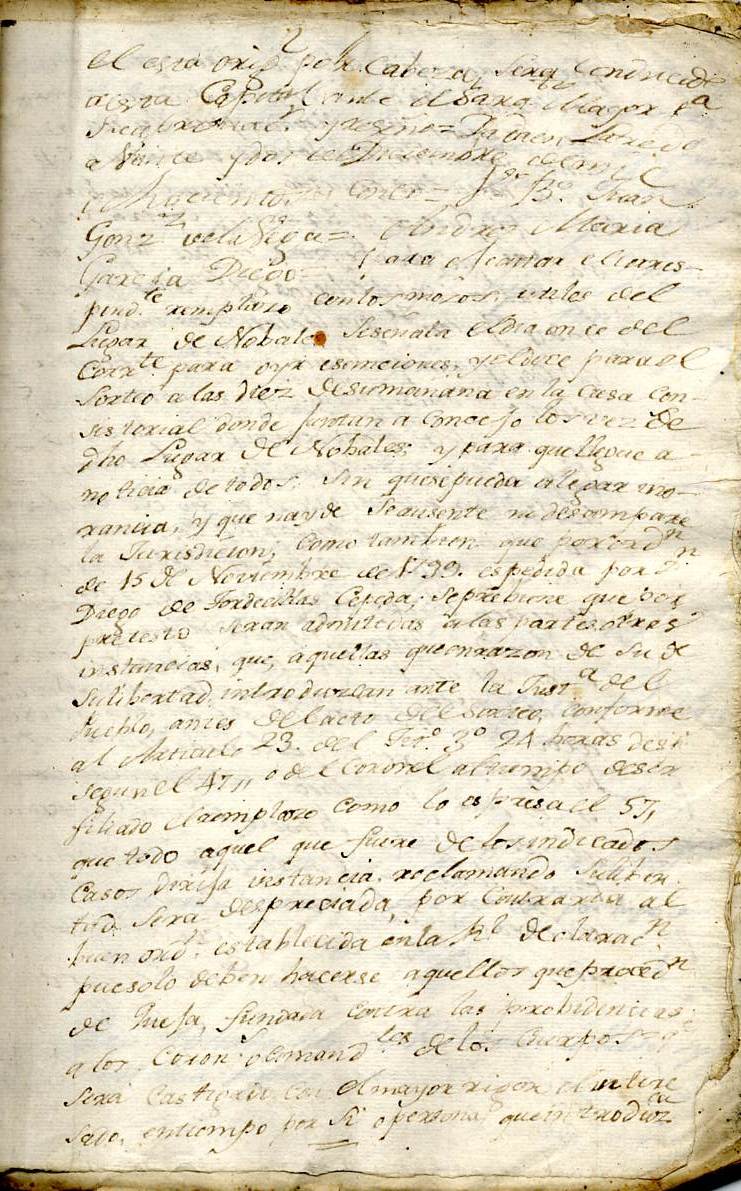 el esta orig^l por Cabeza, sera Conducido
a esta Capital ante el Sarg^to Mayor
y resino = Laredo
a Veinte y dos de Diciembre de mil
ochocientos = J^n B^o Juan
Gonz^z de la Vega = Andres Maria
Garcia Diego = Para efectuar el corres-
pond^te remplazo con los mozos utiles del
Lugar de Nobales Se señala el dia once del
Corr^te para oyr esenciones, y el doce para el
Sorteo a las diez de su mañana en la Casa Con-
sistorial donde juntan a Concejo los vez^s de
dho Lugar de Nobales; y para que llegue a
noticia de todos, sin que se pueda alegar yno-
rancia, y que nayde se ausente ni desampare
la Jurisdicion; Como tambien que por ord^n
de 15 de Noviembre de 1799. espedida por D^n
Diego de Tordecillas Cepeda; se prebiene que por
pretesto seran admitidas a las partes otras
instancias, que aquellas que en razon de su
libertad introduzcan ante la Just^a del
Pueblo, antes del acto del Sorteo, conforme
al Articulo 23. del Tit^o 3^o 24 horas
segun el 47,, o del Coronel al tiempo de ser
filiado el remplazo como lo espresa el 57,
que todo aquel que fuere de los indicados
Casos dirija instancia reclamando su liber
tad sera despreciada, por Contraria al
buen ord^n establecida en la R^l declarac^n
pues solo deben hacerse aquellos que proced^n
de queja, fundada contra las probidencias
a los Coron^s o Comand^tes de los Cuerpos
sera Castigado con el mayor rigor el intere
sado, en tiempo por Si o persona que introduz^ca